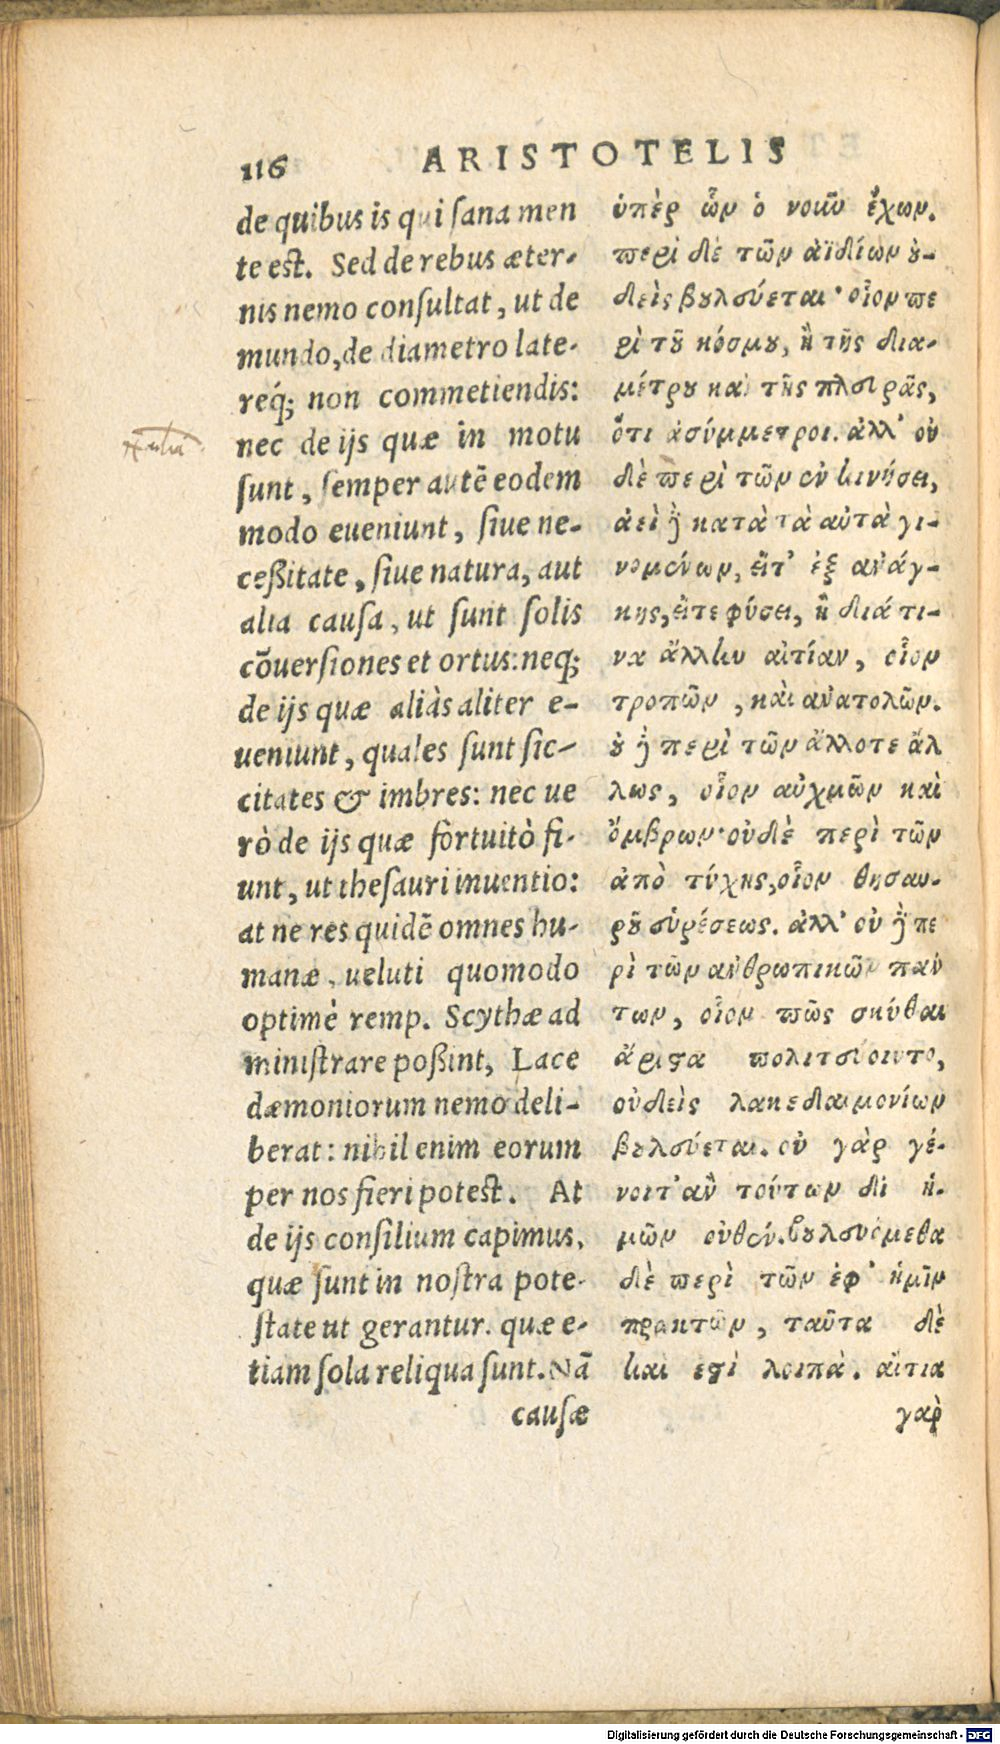 116
ARISTOTELIS
de quibus is qui sana men
te est. Sed de rebus æter-
nis nemo consultat, ut de
mundo, de diametro late-
req́; non commetiendis:
nec de ijs quæ in motu
sunt, semper autẽ eodem
modo eueniunt, siue ne-
ceßitate, siue natura, aut
alia causa, ut sunt solis
cõuersiones et ortus: neq;
de ijs quæ aliàs aliter e-
ueniunt, quales sunt sic-
citates & imbres: nec ue
rò de ijs quæ fortuitò fi-
unt, ut thesauri inuentio:
at ne res quidẽ omnes hu-
manæ, ueluti quomodo
optimè remp. Scythæ ad
ministrare poßint, Lace
dæmoniorum nemo deli-
berat: nihil enim eorum
per nos fieri potest. At
de ijs consilium capimus,
quæ sunt in nostra pote-
state ut gerantur. quæ e-
tiam sola reliqua sunt. Nã
causæ
ὑπὲρ ὧν ὁ νοῦν ἔχων.
περὶ δὲ τῶν ἀϊδίων ὐ-
δεὶς βουλεύεται· οἷον πε
ρὶ τοῦ κόσμου, ἢ τῆς δια-
μέτρου καὶ τῆς πλευρᾶς,
ὅτι ἀσύμμετροι. ἀλλ' οὐ
δὲ περὶ τῶν ἐν κινήσει,
ἀεὶ δὲ κατὰ τὰ αὐτὰ γι-
νομένων, εἴτ' ἐξ ἀνάγ-
κης, εἴτε φύσει, ἢ διά τι-
να ἄλλην αἰτίαν, οἷον
τροπῶν, καὶ ἀνατολῶν.
οὐ δὲ περὶ τῶν ἄλλοτε ἄλ
λως, οἷον αὐχμῶν καὶ
ὄμβρων· οὐδὲ περὶ τῶν
ἀπὸ τύχης, οἷον θησαυ-
ροῦ εὑρέσεως. ἀλλ' οὐ δὲ πε
ρὶ τῶν ἀνθρωπικῶν πάν
των, οἷον πῶς σκύθαι
ἄριστα πολιτεύοιντο,
οὐδεὶς λακεδαιμονίων
βουλεύεται. οὐ γὰρ γέ-
νοιτ' ἂν τούτων δι' ἡ-
μῶν οὐθέν. βουλευόμεθα
δὲ περὶ τῶν ἐφ' ἡμῖν
πρακτῶν, ταῦτα δὲ
καὶ ἐστὶ λοιπά. αἴτια
γὰρ
Digitalisierung gefördert durch die Deutsche Forschungsgemeinschaft - DFG